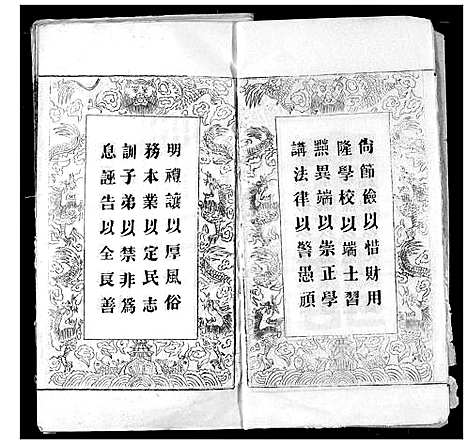 尚節儉以惜財用
隆學校以端士習
黜異端以崇正學
講法律以警愚頑
明禮讓以厚風俗
務本業以定民志
訓子弟以禁非為
息誣告以全良善